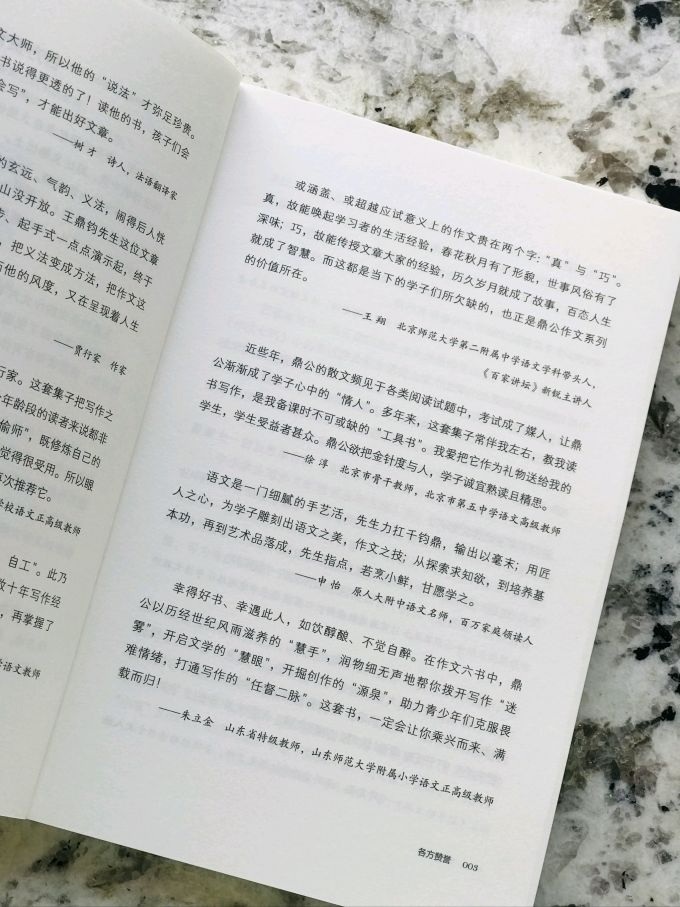 文大师，所以他的“说法”才弥足珍贵。
书说得更透的了！读他的书，孩子们会
会写”，才能出好文章。
——树才 诗人，法语翻译家
的玄远、气韵、义法，闹得后人恍
山没开放。王鼎钧先生这位文章
步、起手式一点点演示起，终于
，把义法变成方法，把作文这
他的风度，又在呈现着人生
——贾行家 作家
行家。这套集子把写作之
年龄段的读者来说都非
偷师”，既修炼自己的
觉得很受用。所以眼
次推荐它。
学校语文正高级教师
自工”。此乃
数十年写作经
，再掌握了
学语文教师
或涵盖、或超越应试意义上的作文贵在两个字：“真”与“巧”。
真，故能唤起学习者的生活经验，春花秋月有了形貌，世事风俗有了
深味；巧，故能传授文章大家的经验，历久岁月就成了故事，百态人生
就成了智慧。而这都是当下的学子们所欠缺的，也正是鼎公作文系列
的价值所在。
——王翔 北京师范大学第二附属中学语文学科带头人，
《百家讲坛》新锐主讲人
近些年，鼎公的散文频见于各类阅读试题中，考试成了媒人，让鼎
公渐渐成了学子心中的“情人”。多年来，这套集子常伴我左右，教我读
书写作，是我备课时不可或缺的“工具书”。我爱把它作为礼物送给我的
学生，学生受益者甚众。鼎公欲把金针度与人，学子诚宜熟读且精思。
——徐淳 北京市骨干教师，北京市第五中学语文高级教师
语文是一门细腻的手艺活，先生力扛千钧鼎，输出以毫末；用匠
人之心，为学子雕刻出语文之美，作文之技；从探索求知欲，到培养基
本功，再到艺术品落成，先生指点，若烹小鲜，甘愿学之。
——申怡 原人大附中语文名师，百万家庭领读人
幸得好书、幸遇此人，如饮醇酿、不觉自醉。在作文六书中，鼎
公以历经世纪风雨滋养的“慧手”，润物细无声地帮你拨开写作“迷
雾”，开启文学的“慧眼”，开掘创作的“源泉”，助力青少年们克服畏
难情绪，打通写作的“任督二脉”。这套书，一定会让你乘兴而来、满
载而归！
——朱立金 山东省特级教师，山东师范大学附属小学语文正高级教师
各方赞誉 003